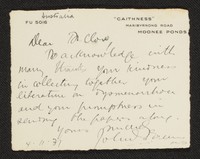 Australia
FU 5018
"CAITHNESS"
MARIBYRNONG ROAD
MOONEE PONDS
Dear Mr Close,
To acknowledge with
many thanks your kindness
in collecting together your
literature on
and your promptness in
sending the papers along.
Yours sincerely
John